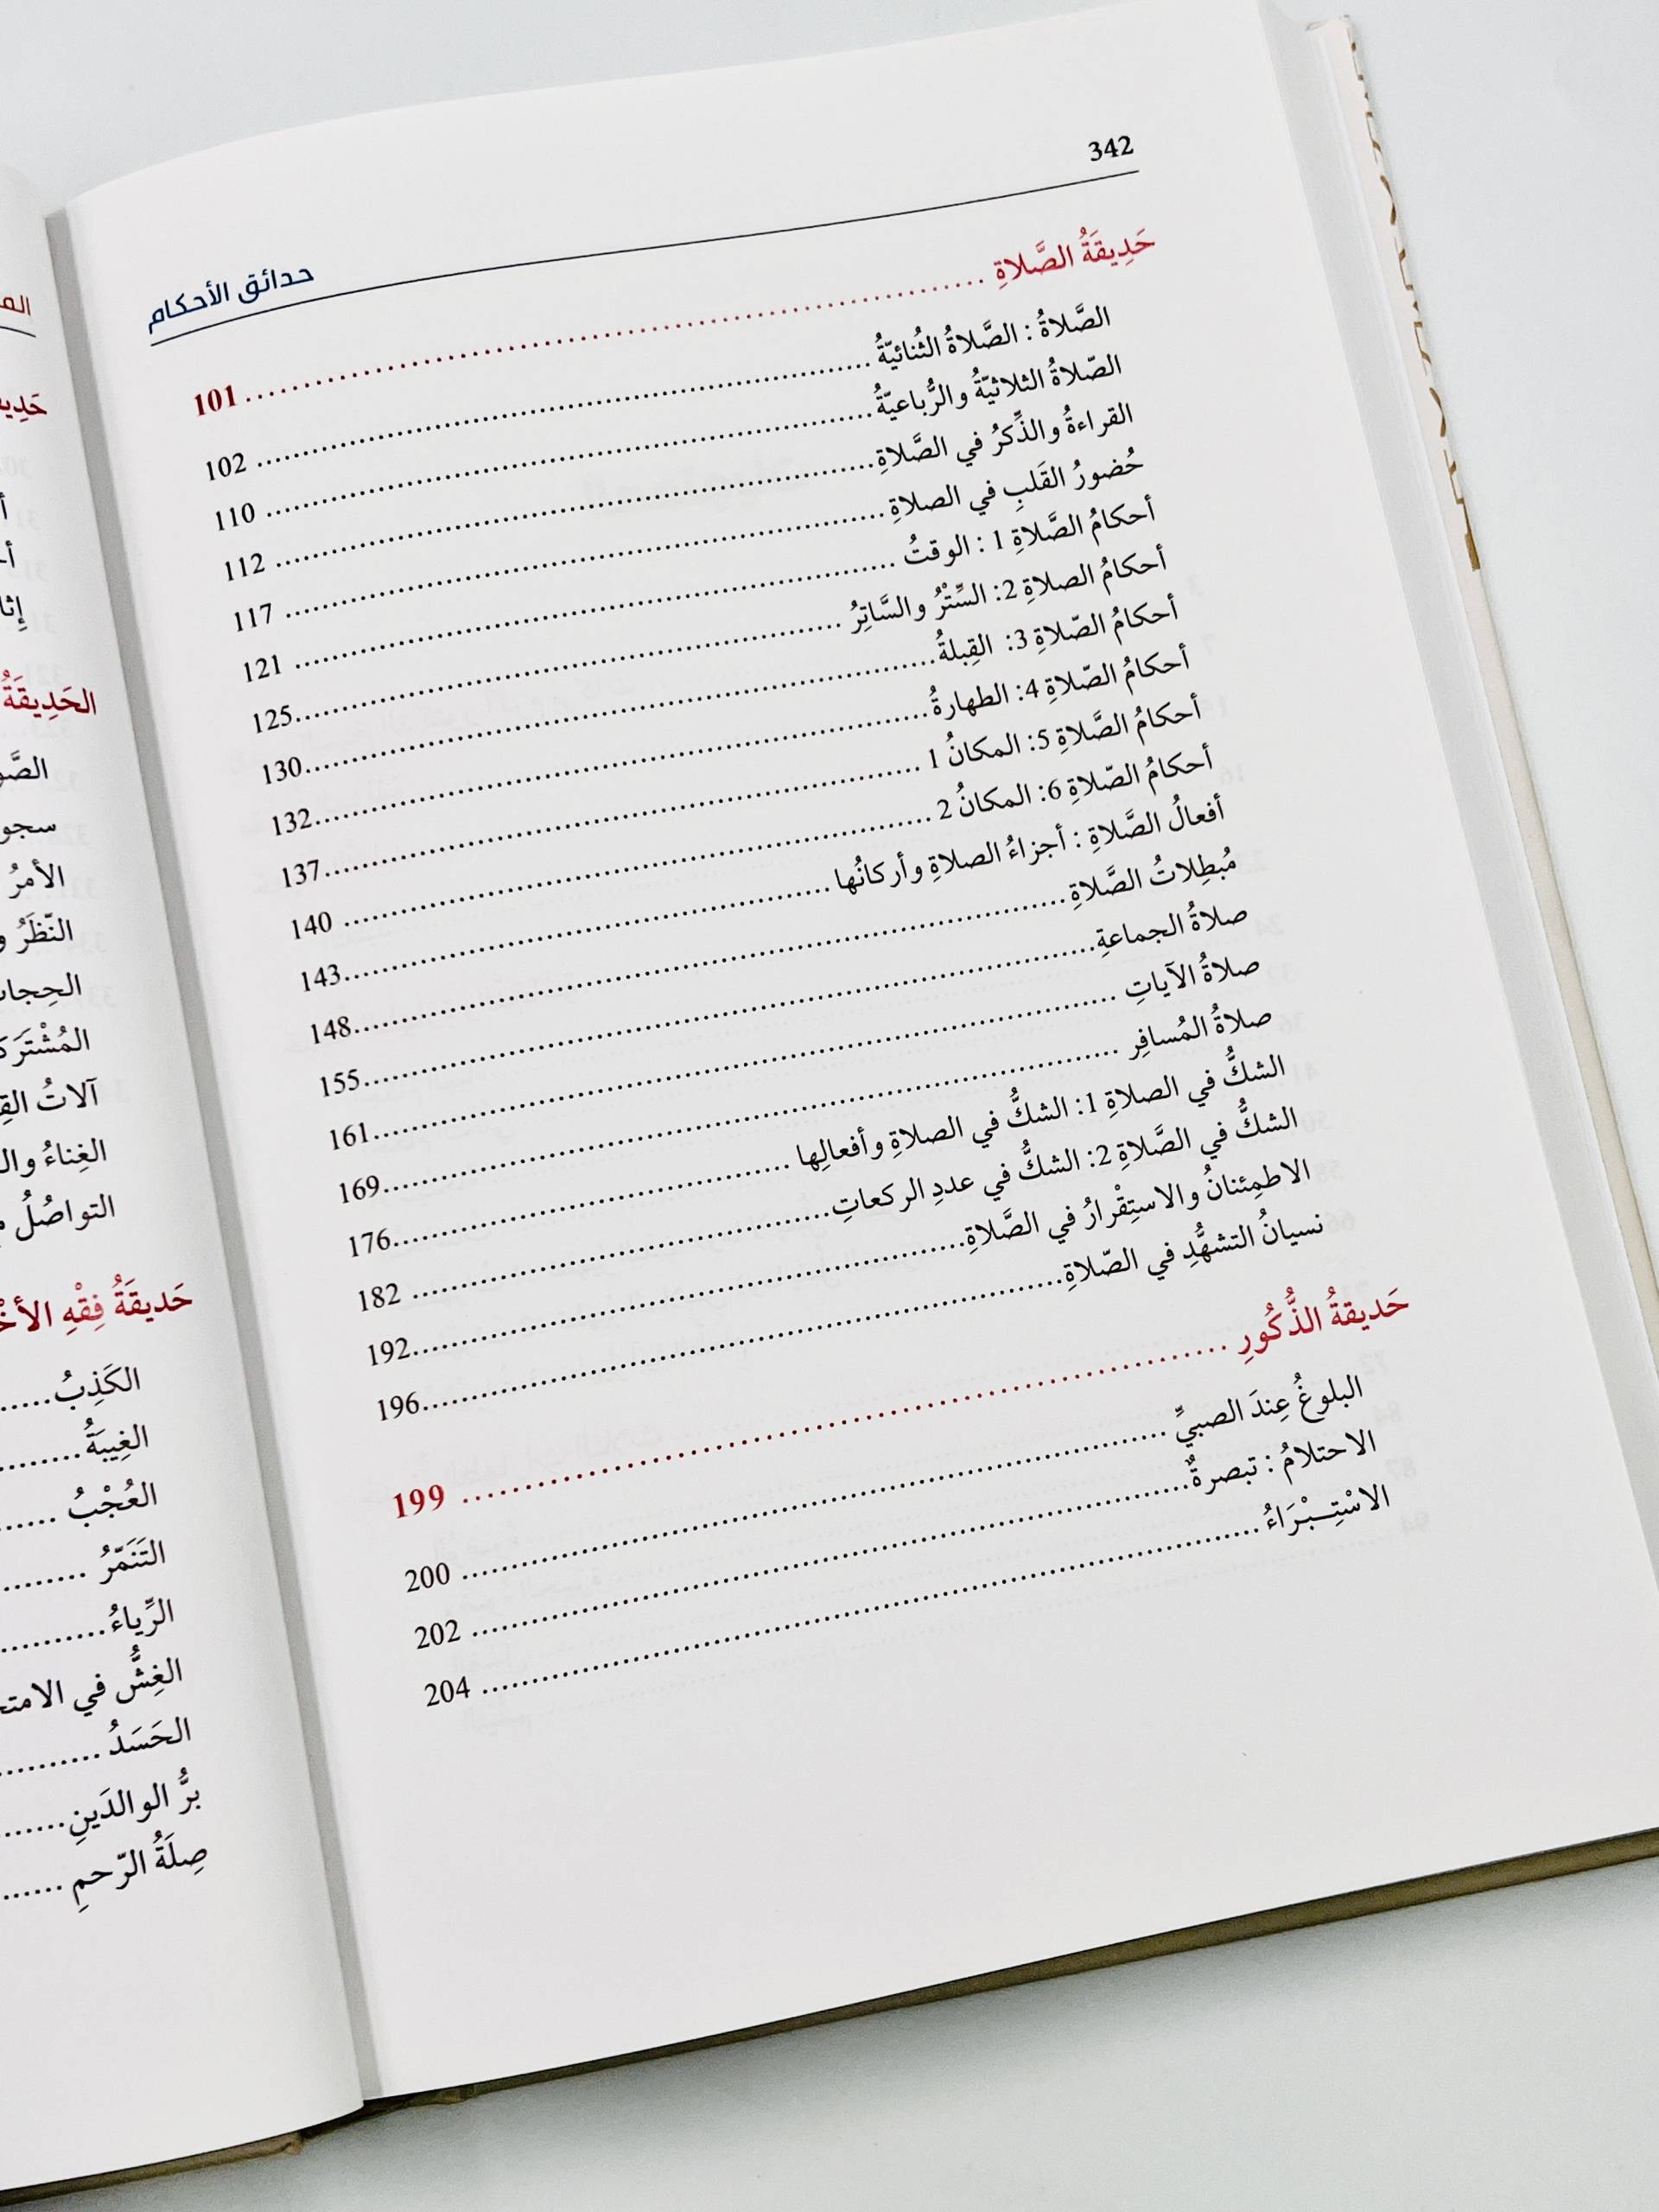 342
حدائق الأحكام
حَدِيقَةُ الصَّلاةِ ........ 101
الصَّلاةُ : الصَّلاةُ الثُنائيّةُ ........ 102
الصّلاةُ الثلاثيّةُ والرُّباعيّةُ ........ 110
القراءةُ والذِّكرُ في الصَّلاةِ ........ 112
حُضورُ القَلبِ في الصلاةِ ........ 117
أحكامُ الصَّلاةِ 1 : الوقتُ ........ 121
أحكامُ الصلاةِ 2: السِّتْرُ والسَّاتِرُ ........ 125
أحكامُ الصّلاةِ 3: القِبلةُ ........ 130
أحكامُ الصّلاةِ 4: الطهارةُ ........ 132
أحكامُ الصَّلاةِ 5: المكانُ 1 ........ 137
أحكامُ الصّلاةِ 6: المكانُ 2 ........ 140
أفعالُ الصَّلاةِ : أجزاءُ الصلاةِ وأركانُها ........ 143
مُبطِلاتُ الصَّلاةِ ........ 148
صلاةُ الجماعةِ ........ 155
صلاةُ الآياتِ ........ 161
صلاةُ المُسافِرِ ........ 169
الشكُّ في الصلاةِ 1: الشكُّ في الصلاةِ وأفعالِها ........ 176
الشكُّ في الصَّلاةِ 2: الشكُّ في عددِ الركعاتِ ........ 182
الاطمِئنانُ والاستِقْرارُ في الصَّلاةِ ........ 192
نسيانُ التشهُّدِ في الصّلاةِ ........ 196
حَديقةُ الذُّكُورِ ........ 199
البلوغُ عِندَ الصبيِّ ........ 200
الاحتلامُ : تبصرةٌ ........ 202
الاسْتِـبْرَاءُ ........ 204
الحَدِيقَةُ
الأمرُ
النّظَرُ
آلاتُ
الغِناءُ
التواصُلُ
حَديقةُ فِقْهِ
الكَذِبُ ........
الغِيبَةُ ........
العُجْبُ ........
التَنَمّرُ ........
الرِّياءُ ........
الغِشُّ في
الحَسَدُ ........
برُّ الوالدَينِ ........
صِلَةُ الرّحمِ ........